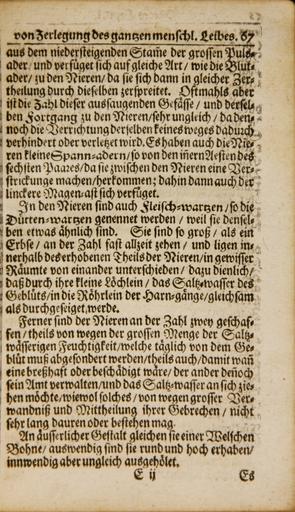 von Zerlegung des gantzen menschl. Leibes. 67
aus dem niedersteigenden Stam̃e der grossen Puls⸗
ader / und verfüget sich auf gleiche Art / wie die Blut⸗
ader / zu den Nieren / da sie sich dann in gleicher Zer⸗
theilung durch dieselben zerspreitet. Oftmahls aber
ist die Zahl dieser aussaugenden Gefässe / und dersel⸗
ben Fortgang zu den Nieren / sehr ungleich / da den⸗
noch die Verrichtung derselben keines weges dadurch
verhindert oder verletzet wird. Es haben auch die Nie⸗
ren kleine Spann⸗adern / so von den iñern Aesten des
sechsten Paares / da sie zwischen den Nieren eine Ver⸗
strickunge machen / herkommen; dahin dann auch der
linckere Magen⸗ast sich verfüget.
In den Nieren sind auch Fleisch⸗wartzen / so die
Dutten⸗wartzen genennet werden / weil sie densel⸗
ben etwas ähnlich sind. Sie sind so groß / als eine
Erbse / an der Zahl fast allzeit zehen / und ligen in⸗
nerhalb des erhobenen Theils der Nieren / in gewisser
Räumte von einander unterschieden / dazu dienlich /
daß durch ihre kleine Löchlein / das Saltz⸗wasser des
Geblüts / in die Röhrlein der Harn⸗gänge / gleichsam
als durchgeseiget, werde.
Ferner sind der Nieren an der Zahl zwey geschaf⸗
fen / theils von wegen der grossen Menge der Saltz⸗
wässerigen Feuchtigkeit / welche täglich von dem Ge⸗
blüt muß abgesondert werden / theils auch / damit wañ
eine breßhaft oder beschädigt wäre / der ander deñoch
sein Amt verwalten / und das Saltz⸗wasser an sich zie⸗
hen möchte / wiewol solches / von wegen grosser Ver⸗
wandniß und Mittheilung ihrer Gebrechen / nicht
sehr lang dauren oder bestehen mag.
An äusserlicher Gestalt gleichen sie einer Welschen
Bohne / auswendig sind sie rund und hoch erhaben /
innwendig aber ungleich ausgehölet.
E ij Es